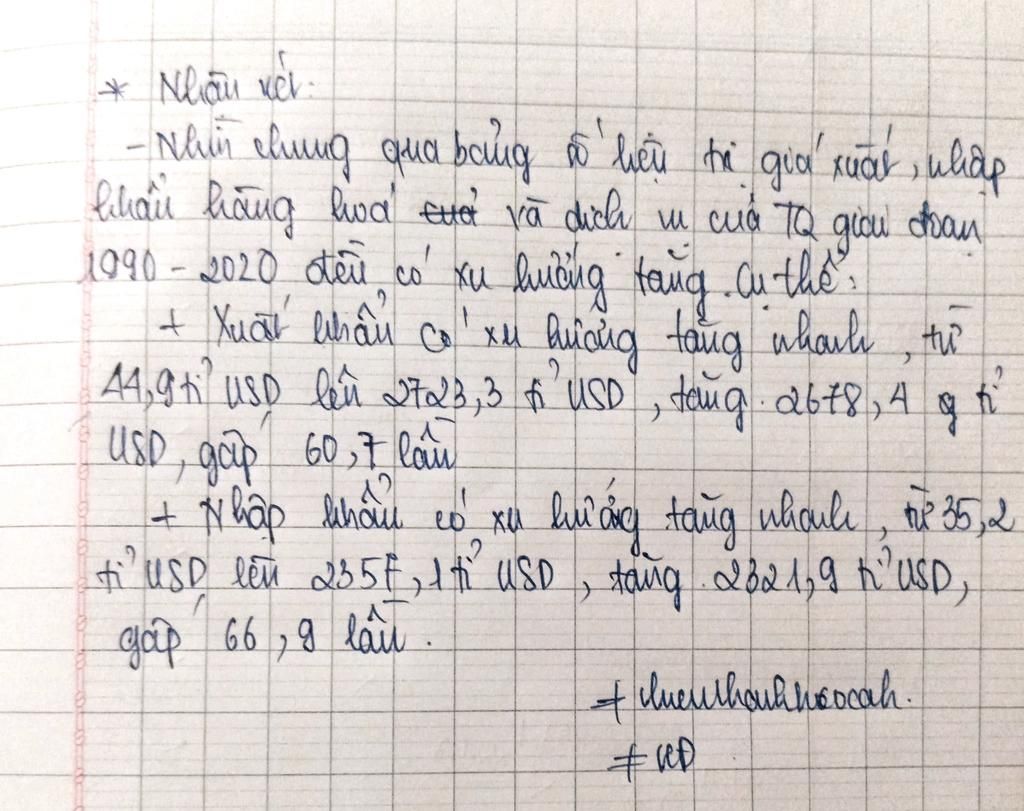 * Nhận xét:
- Nhìn chung qua bảng số liệu trị giá xuất, nhập
khẩu hàng hoá và dịch vụ của TQ giai đoạn
1990 - 2020 đều có xu hướng tăng. Cụ thể:
+ Xuất khẩu có xu hướng tăng nhanh, từ
44,9 tỉ USD lên 2723,3 tỉ USD, tăng 2678,4 tỉ
USD, gấp 60,7 lần
+ Nhập khẩu có xu hướng tăng nhanh, từ 35,2
tỉ USD lên 2357,1 tỉ USD, tăng 2321,9 tỉ USD,
gấp 66,9 lần.